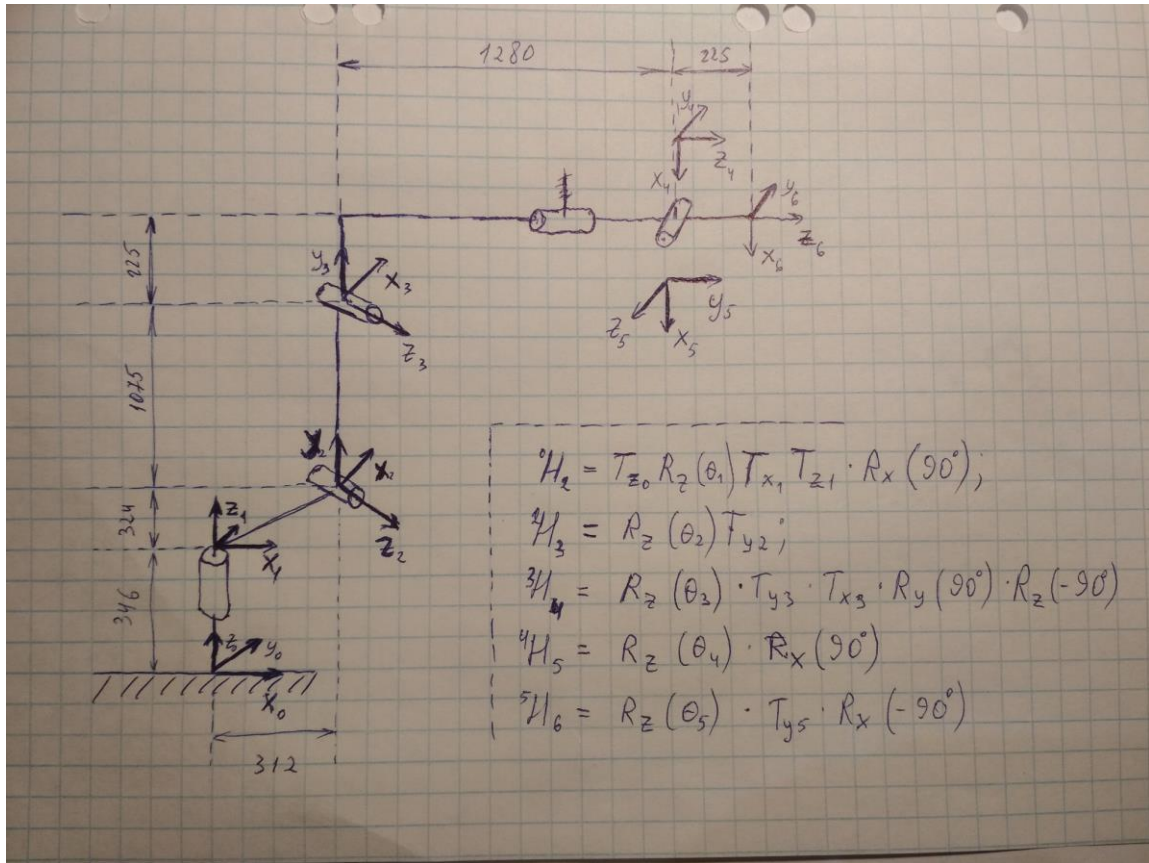 1280
225
y₄
z₄
x₄
y₆
z₆
x₆
225
y₃
x₃
z₃
y₅
z₅
x₅
1075
x₂
z₂
324
z₁
x₁
346
z₀
y₀
x₀
312
⁰H₂ = T_z₀ R_z(θ₁) T_x₁ T_z₁ · R_x(90°);
²H₃ = R_z(θ₂) T_y₂;
³H₄ = R_z(θ₃) · T_y₃ · T_x₃ · R_y(90°) · R_z(-90°)
⁴H₅ = R_z(θ₄) · R_x(90°)
⁵H₆ = R_z(θ₅) · T_y₅ · R_x(-90°)